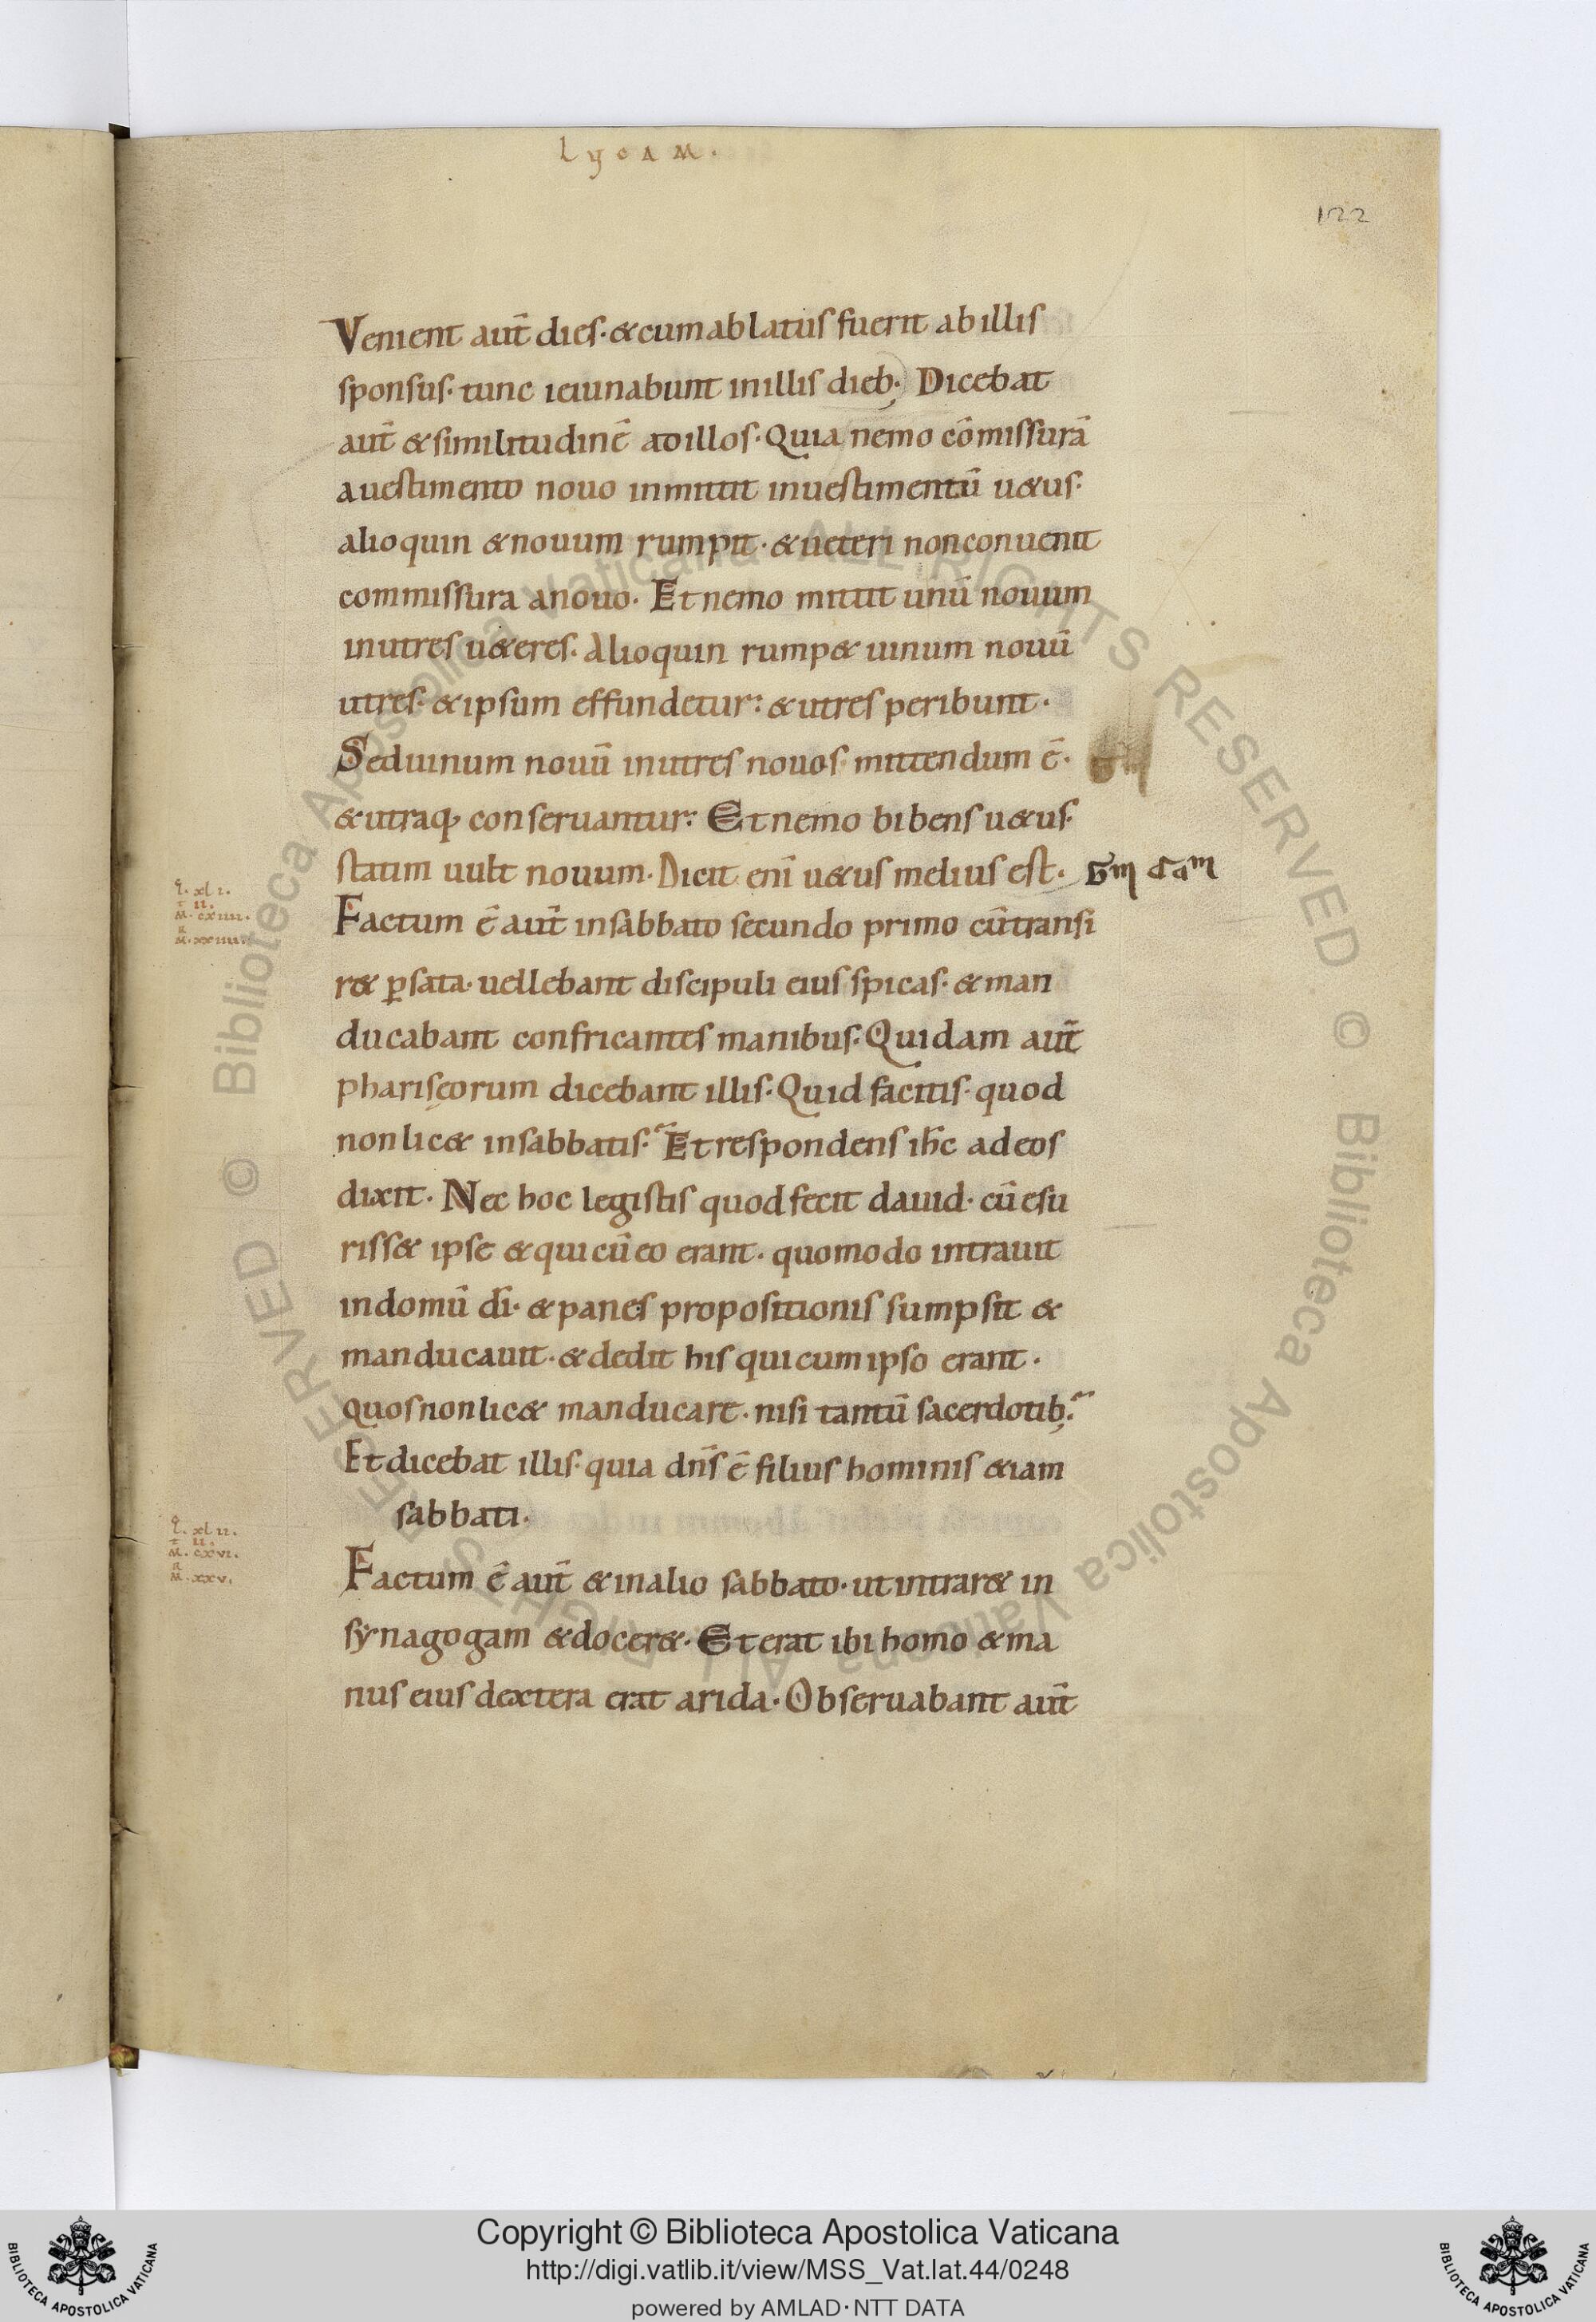 lycam.
122
Venient aut̄ dies· & cum ablatus fuerit ab illis
sponsus· tunc ieiunabunt in illis dieb; Dicebat
aut̄ & similitudinē ad illos· Quia nemo cōmissurā
a uestimento nouo inmittit in uestimentū u&us·
alioquin & nouum rumpit· & ueteri non conuenit
commissura a nouo· Et nemo mittit uinū nouum
in utres u&eres· Alioquin rump& uinum nouū
utres· & ipsum effundetur: & utres peribunt·
Sed uinum nouū in utres nouos mittendum ē·
& utraq; conseruantur: Et nemo bibens u&us·
statim uult nouum· Dicit enī u&us melius est·
L. xl i.
t ii.
M. cxiiii.
R
M. xxiiii.
Factum ē aut̄ in sabbato secundo primo cū transi
r& ꝑ sata· uellebant discipuli eius spicas· & man
ducabant confricantes manibus· Quidam aut̄
pharisęorum dicebant illis· Quid facitis· quod
non lic& in sabbatis· Et respondens ih̄c ad eos
dixit· Nec hoc legistis quod fecit dauid· cū esu
riss& ipse & qui cū eo erant· quomodo intrauit
in domū dī· & panes propositionis sumpsit &
manducauit· & dedit his qui cum ipso erant·
quos non lic& manducare· nisi tantū sacerdotib;
Et dicebat illis· quia dn̄s ē filius hominis &iam
sabbati·
L. xl ii.
t ii.
M. cxvi.
R
M. xxv.
Factum ē aut̄ & in alio sabbato· ut intrar& in
synagogam & docer&· Et erat ibi homo & ma
nus eius dextera erat arida· Obseruabant aut̄
Copyright © Biblioteca Apostolica Vaticana
http://digi.vatlib.it/view/MSS_Vat.lat.44/0248
powered by AMLAD·NTT DATA
BIBLIOTECA APOSTOLICA VATICANA
BIBLIOTECA APOSTOLICA VATICANA
© Biblioteca Apostolica Vaticana ALL RIGHTS RESERVED
© Biblioteca Apostolica Vaticana ALL RIGHTS RESERVED